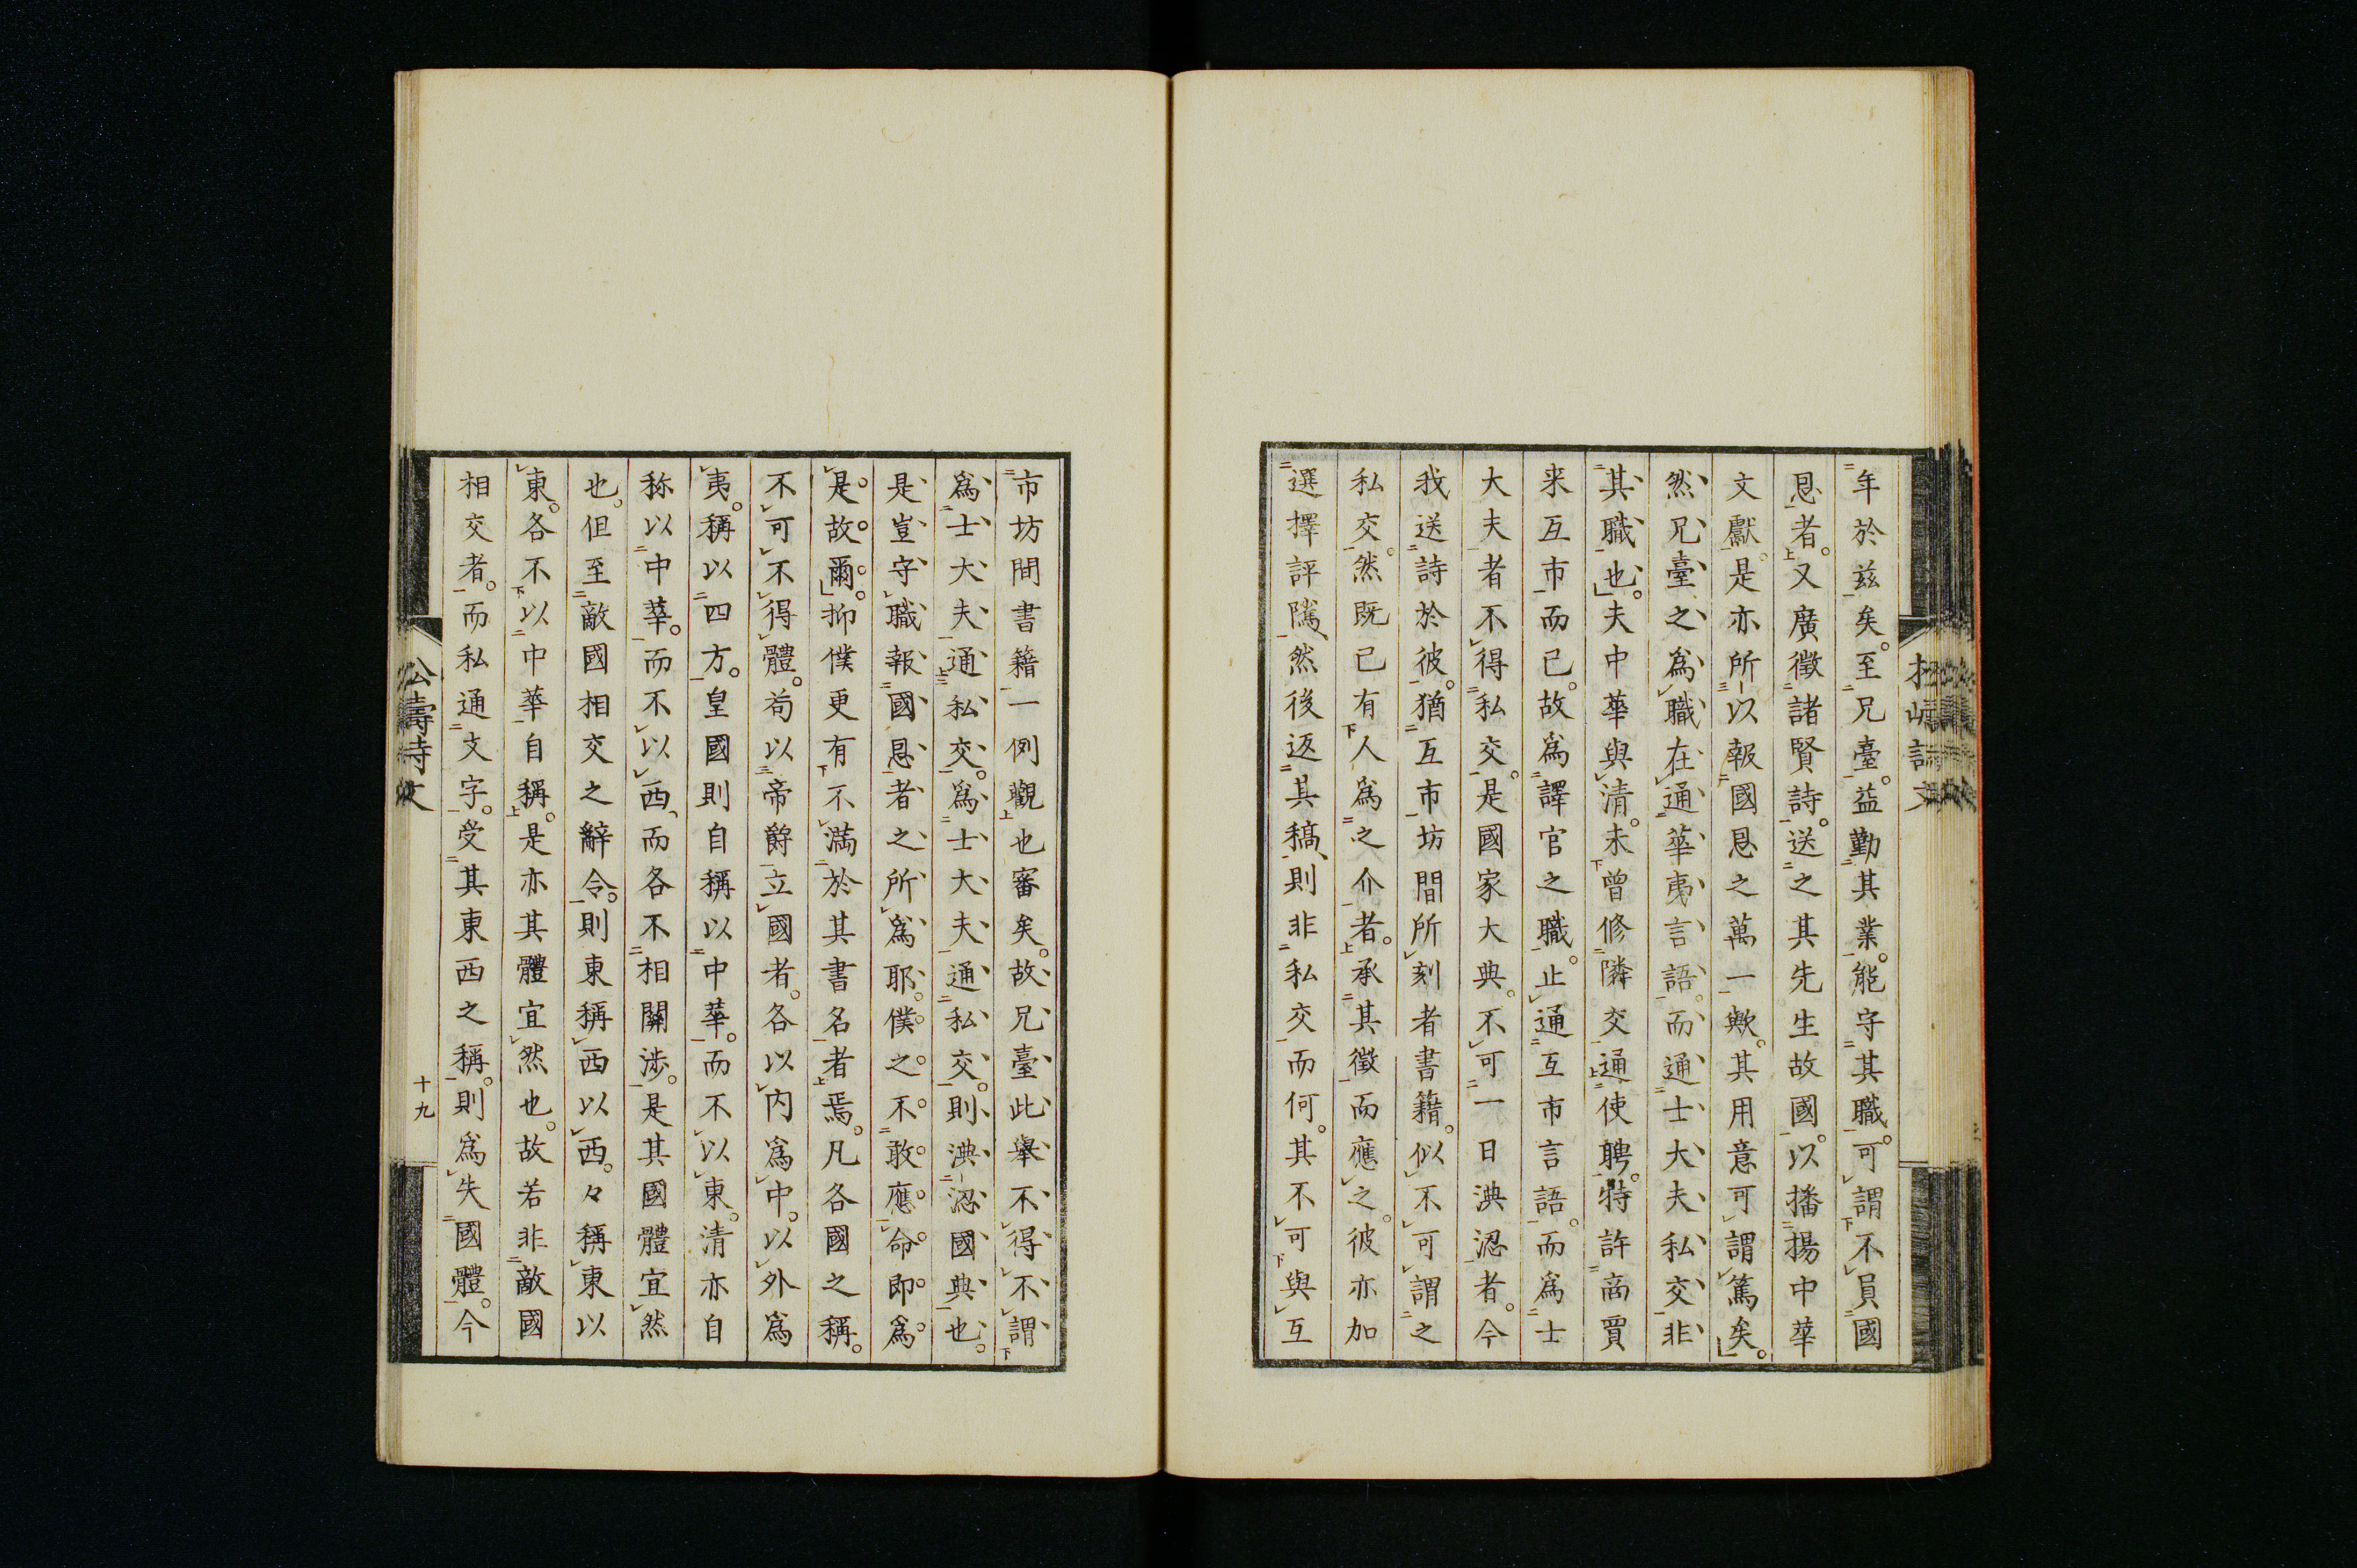 年於茲矣。至兄臺。益勤其業。能守其職。可謂不負國
恩者。又廣徵諸賢詩。送之其先生故國。以播揚中華
文獻。是亦所以報國恩之萬一歟。其用意可謂篤矣。
然兄臺之爲職在通華夷言語。而通士大夫私交非
其職也。夫中華與清。未曾修隣交通使聘。特許商買
来互市而已。故爲譯官之職。止通互市言語。而爲士
大夫者不得私交。是國家大典。不可一日淟涊者。今
我送詩於彼。猶互市坊間所刻者書籍。似不可謂之
私交。然既已有人爲之介者。承其徵而應之。彼亦加
選擇評隲、然後返其稿、則非私交而何。其不可與互
市坊間書籍一例觀也審矣。故兄臺此舉不得不謂
爲士大夫通私交。爲士大夫通私交。則淟涊國典也。
是豈守職報國恩者之所爲耶。僕之不敢應命即爲
是故爾。抑僕更有不満於其書名者焉。凡各國之稱。
不可不得體。苟以帝爵立國者。各以内爲中。以外爲
夷。稱以四方。皇國則自稱以中華。而不以東。清亦自
称以中華。而不以西、而各不相關渉。是其國體宜然
也。但至敵國相交之辭令。則東稱西以西。々稱東以
東。各不以中華自稱。是亦其體宜然也。故若非敵國
相交者。而私通文字。受其東西之稱。則爲失國體。今
十九